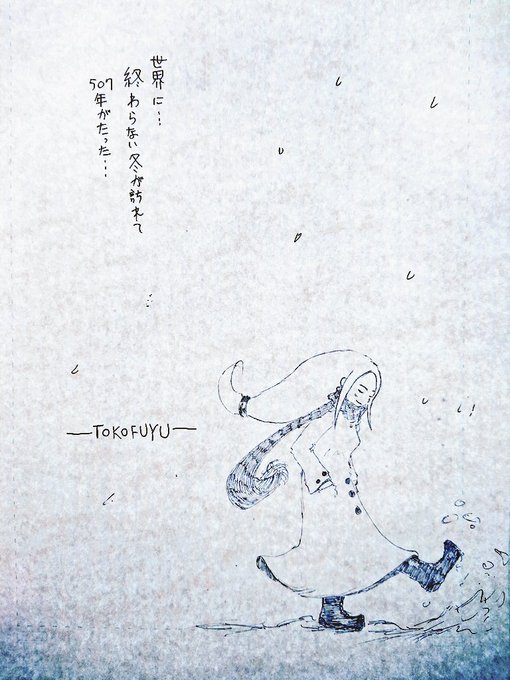 世界に…
終わらない冬が訪れて
507年がたった…
—TOKOFUYU—